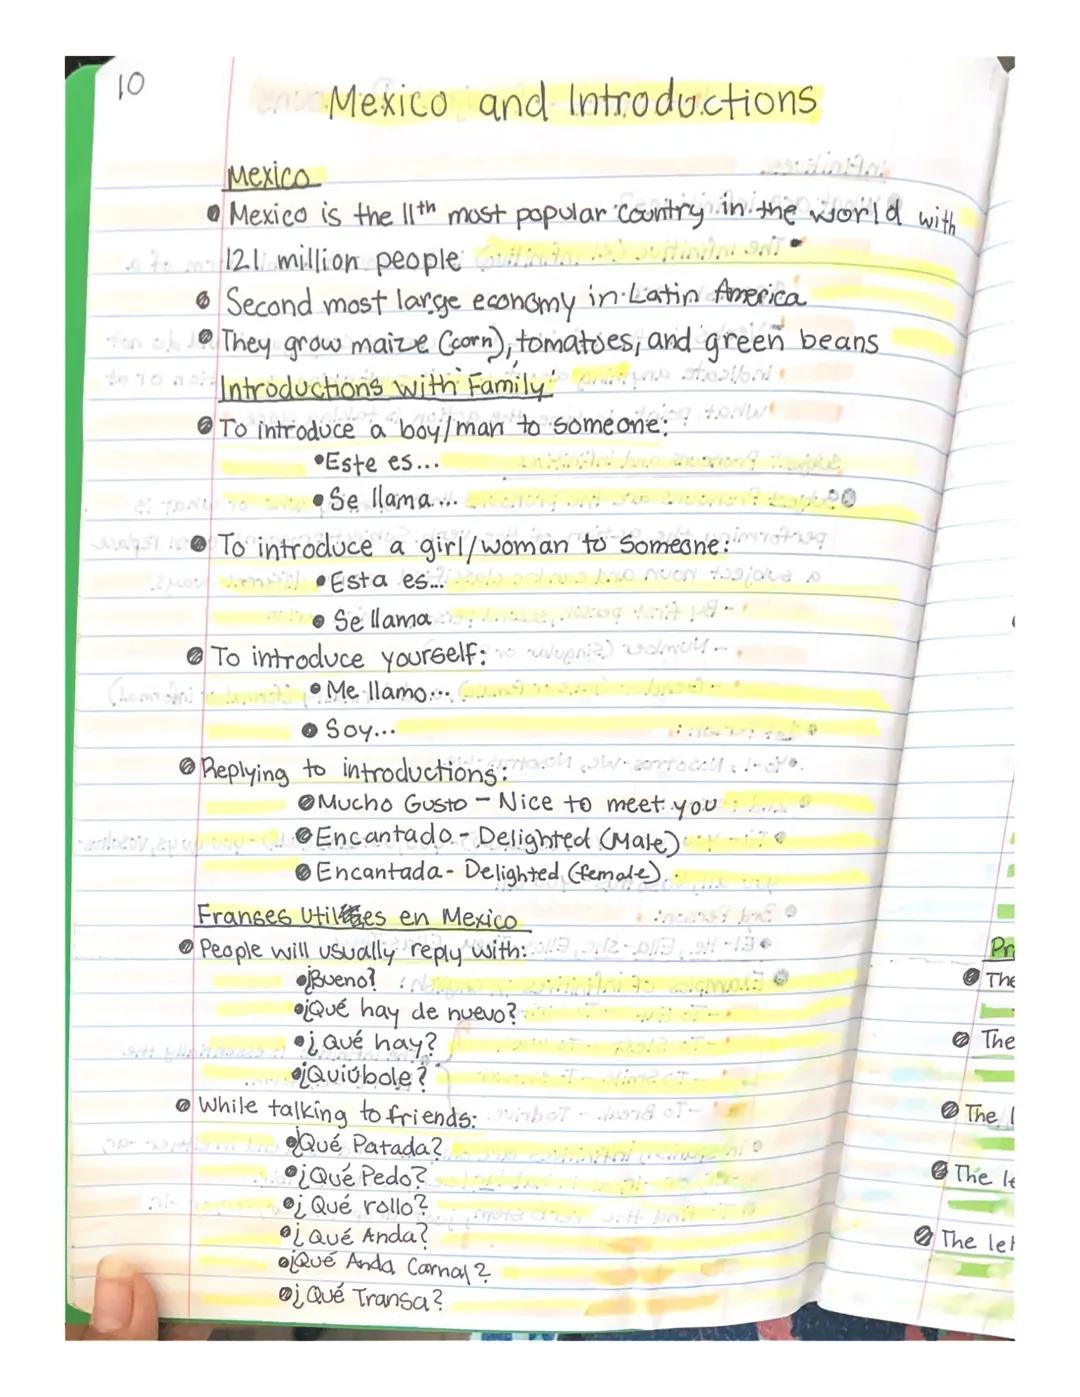 10
Mexico and Introductions
Mexico
Mexico is the 11th most popular country in the world with
121 million people
Second most large economy in Latin America
They grow maize (corn), tomatoes, and green beans
Introductions with Family
To introduce a boy/man to someone:
Este es...
Se llama...
To introduce a girl/woman to Someone:
Esta es...
Se llama
To introduce yourself:
Me llamo...
Soy...
Replying to introductions:
Mucho Gusto - Nice to meet you
Encantado - Delighted (Male)
Encantada - Delighted (female)
Franses Utiles en Mexico
People will usually reply with:
¿Bueno?
¿Qué hay de nuevo?
¿Qué hay?
¿Quiúbole?
While talking to friends:
¿Qué Patada?
¿Qué Pedo?
¿Qué rollo?
¿Qué Anda?
¿Qué Anda Carnal?
¿Qué Transa?
Pr
The
The
The l
The le
The let